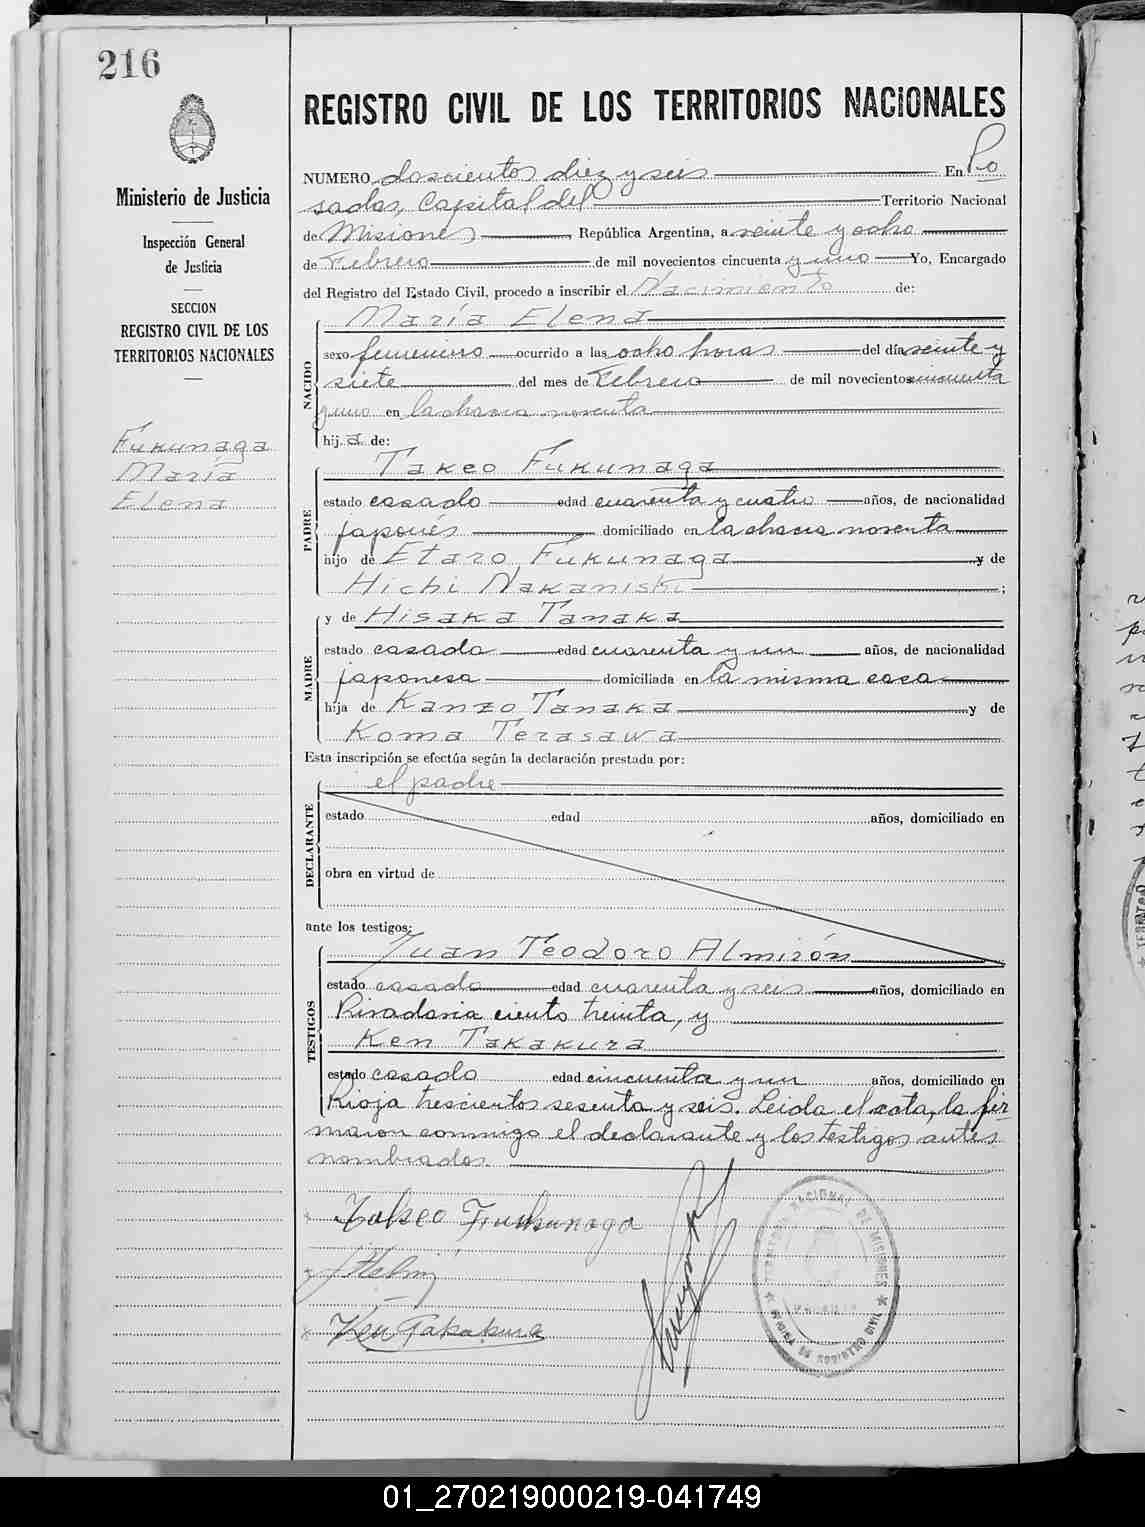 216
REGISTRO CIVIL DE LOS TERRITORIOS NACIONALES
Ministerio de Justicia
Inspección General
de Justicia
SECCION
REGISTRO CIVIL DE LOS
TERRITORIOS NACIONALES
Fukunaga
María
Elena
NUMERO doscientos diez y seis En Po
sadas, Capital del Territorio Nacional
de Misiones, República Argentina, a veinte y ocho
de Febrero de mil novecientos cincuenta y uno Yo, Encargado
del Registro del Estado Civil, procedo a inscribir el Nacimiento de:
María Elena
NACIDO
sexo femenino ocurrido a las ocho horas del día veinte y
siete del mes de Febrero de mil novecientos cincuenta
y uno en la chacra noventa
hij a de:
Takeo Fukunaga
PADRE
estado casado edad cuarenta y cuatro años, de nacionalidad
japonés domiciliado en la chacra noventa
hijo de Etaro Fukunaga y de
Hichi Nakaniski;
y de Hisaka Tanaka
MADRE
estado casada edad cuarenta y un años, de nacionalidad
japonesa domiciliada en la misma casa
hija de Kanzo Tanaka y de
Koma Terasawa
Esta inscripción se efectúa según la declaración prestada por:
el padre
DECLARANTE
estado edad años, domiciliado en
obra en virtud de
ante los testigos:
Juan Teodoro Almirón
TESTIGOS
estado casado edad cuarenta y seis años, domiciliado en
Rivadavia ciento treinta, y
Ken Takakura
estado casado edad cincuenta y un años, domiciliado en
Rioja trescientos sesenta y seis. Leida el acta, la fir
maron conmigo el declarante y los testigos antes
nombrados.
Takeo Fukunaga
Ken Takakura
TERRITORIO NACIONAL DE MISIONES
OFICINA DE REGISTRO CIVIL
01_270219000219-041749